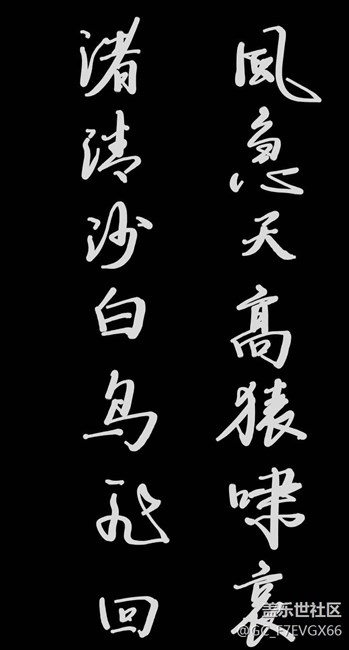 风急天高猿啸哀
渚清沙白鸟飞回
盖乐世社区
@GC_F7EVGX66